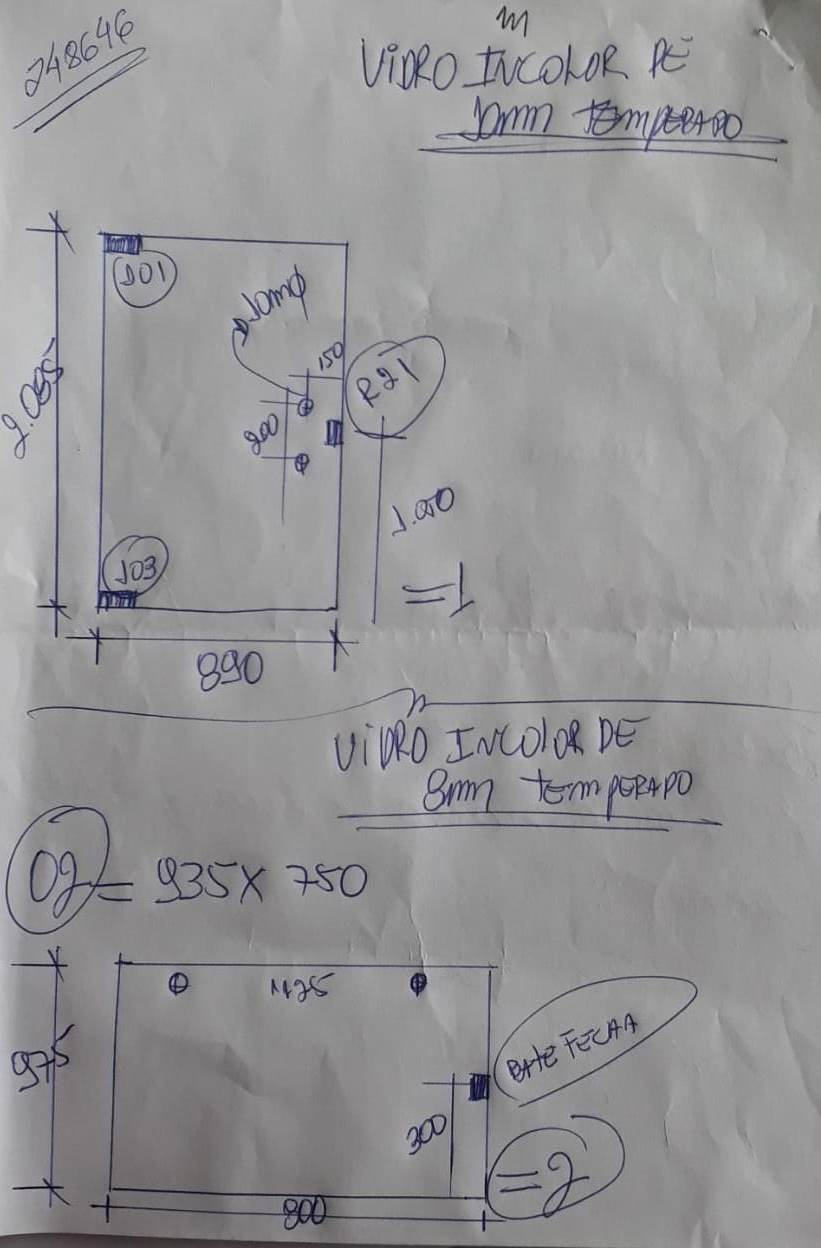 248646
m
VIDRO INCOLOR DE
10mm TEMPERADO
J01
10mmφ
150
R21
2.085
200
1.00
J03
=1
890
VIDRO INCOLOR DE
8mm TEMPERADO
02 = 935 X 750
1175
975
BATE FECHA
300
=2
800